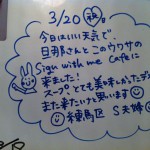 3/20 祝
今日はいい天気で、
旦那さんとこのウワサの
Sign with me Cafeに
来ました!
スープ、とても美味しかったデス
また来たいと思います
練馬区 S夫婦